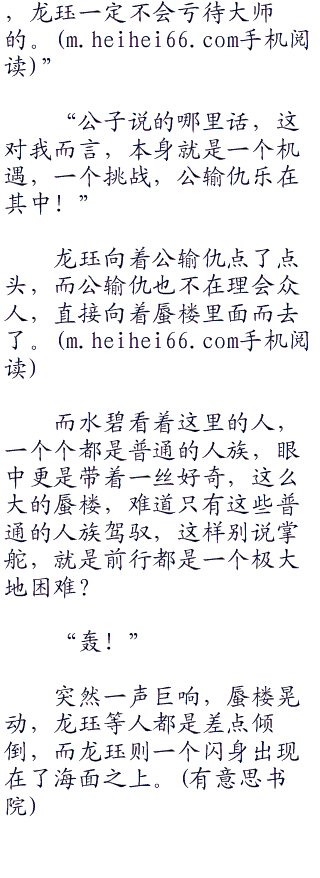 ，龙珏一定不会亏待大师
的。(m.heihei66.com手机阅
读)”
“公子说的哪里话，这
对我而言，本身就是一个机
遇，一个挑战，公输仇乐在
其中！”
龙珏向着公输仇点了点
头，而公输仇也不在理会众
人，直接向着蜃楼里面而去
了。(m.heihei66.com手机阅
读)
而水碧看着这里的人，
一个个都是普通的人族，眼
中更是带着一丝好奇，这么
大的蜃楼，难道只有这些普
通的人族驾驭，这样别说掌
舵，就是前行都是一个极大
地困难？
“轰！”
突然一声巨响，蜃楼晃
动，龙珏等人都是差点倾
倒，而龙珏则一个闪身出现
在了海面之上。(有意思书
院)